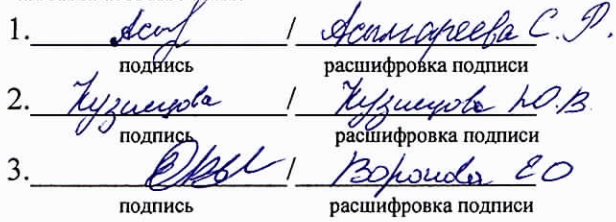 1. Асм / Асылгареева С. Р.
подпись расшифровка подписи
2. Кузнецова / Кузнецова Ю.В.
подпись расшифровка подписи
3. / Воронова ЕО
подпись расшифровка подписи